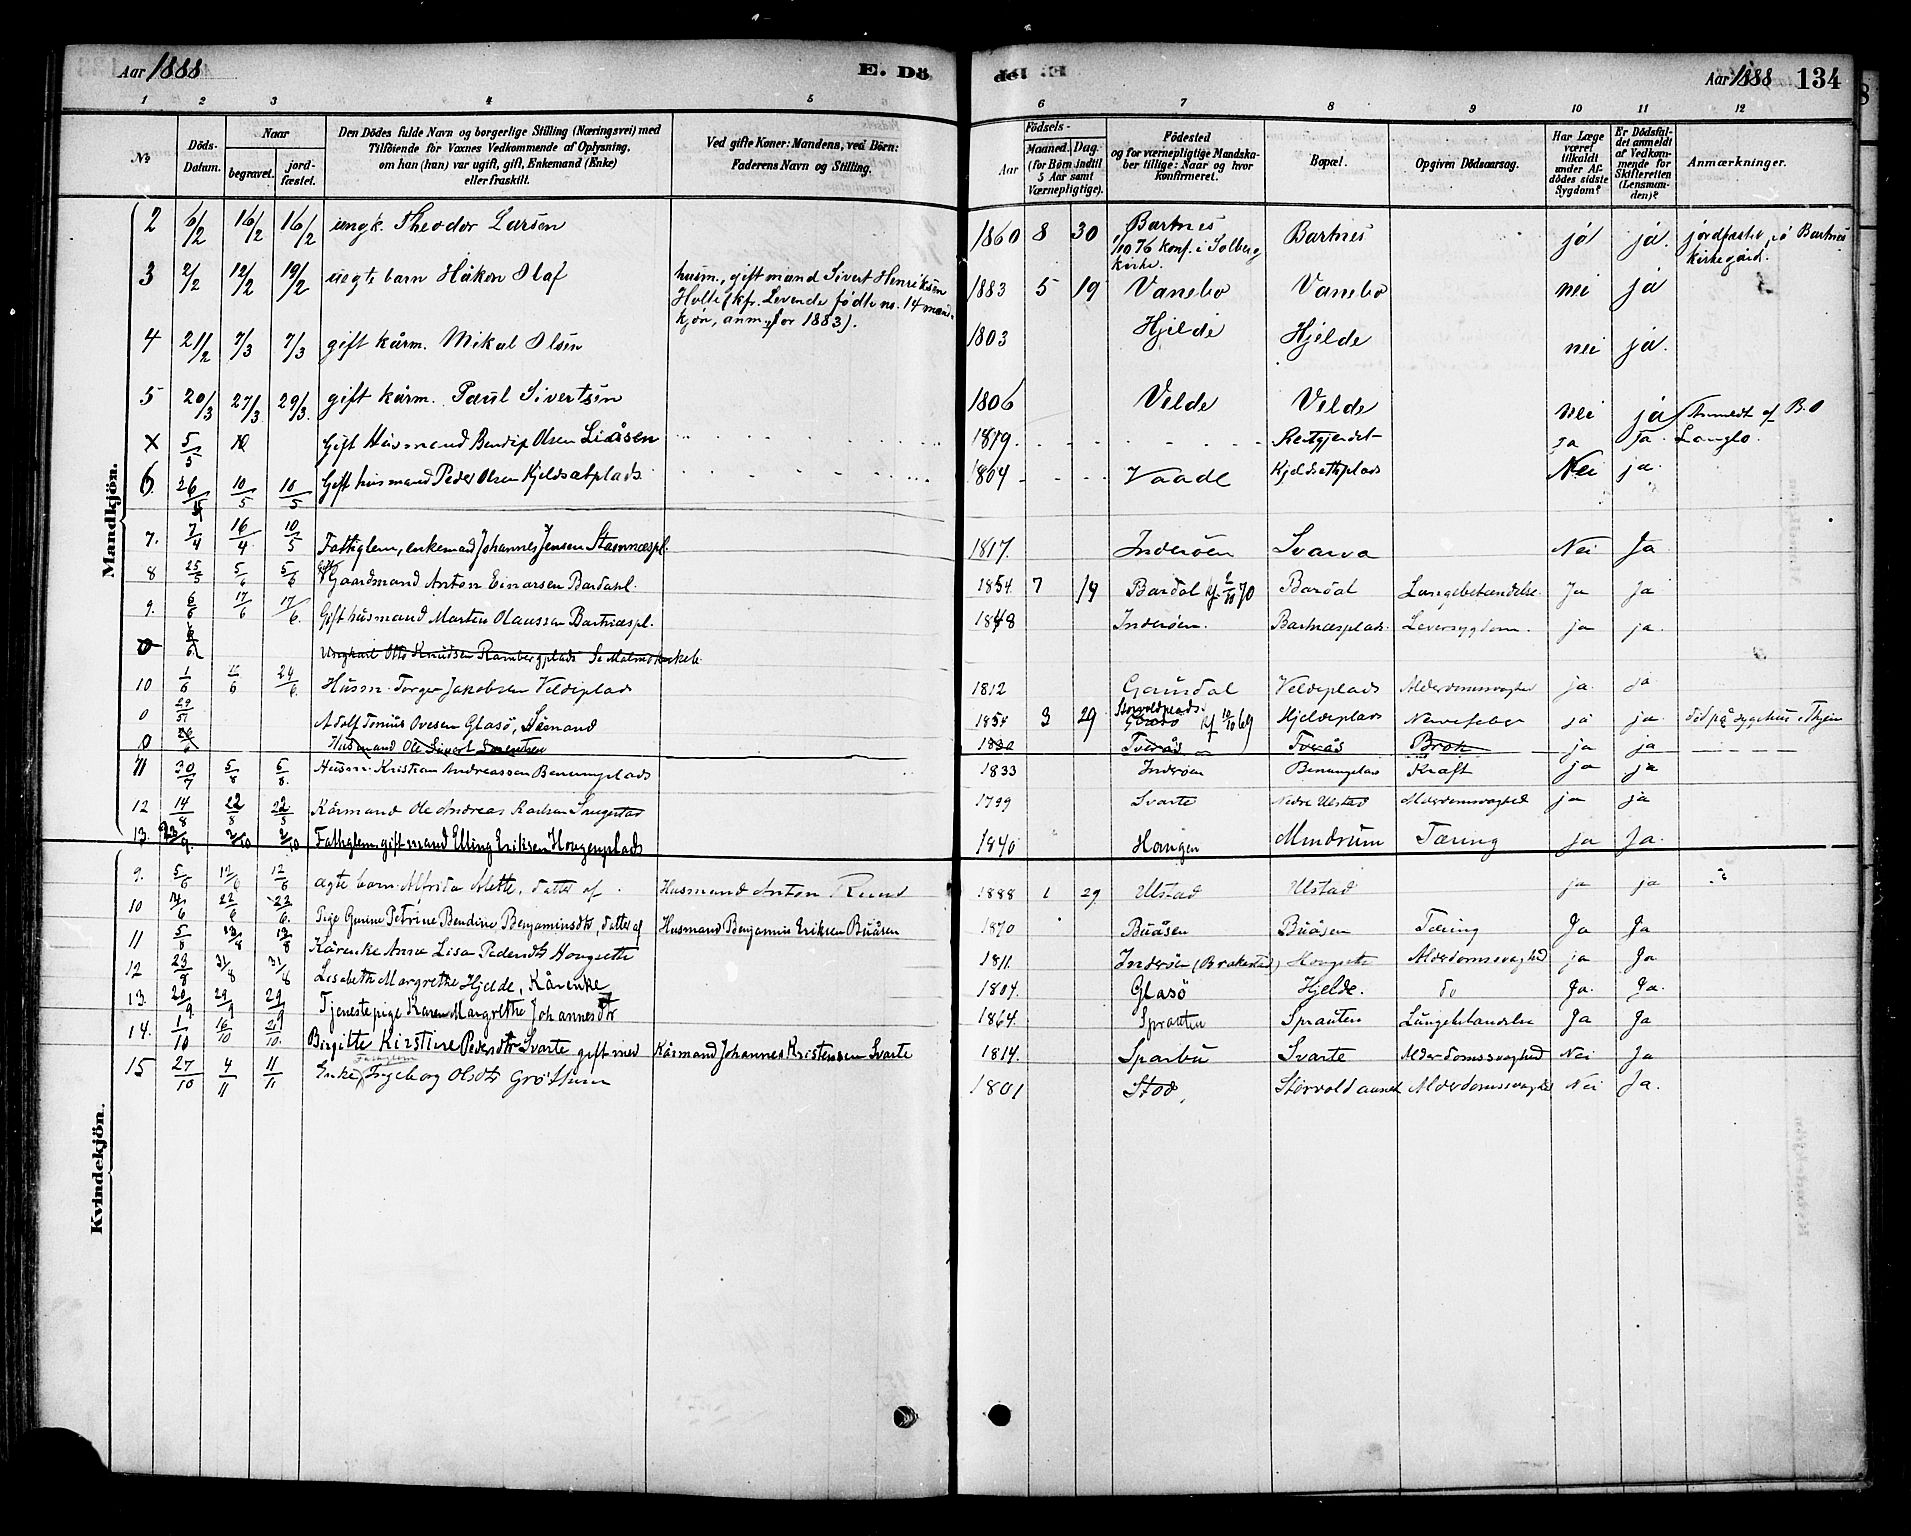 Aar 1888 E. Dö
de Aar 1888 134
1 2 3 4 5
6 7 8 9 10 11 12
No Döds-Datum. Naar begravet. jordfæstet.
Den Dödes fulde Navn og borgerlige Stilling (Næringsvei) med
Tilföiende for Voxnes Vedkommende af Oplysning,
om han (hun) var ugift, gift, Enkemand (Enke)
eller fraskilt.
Ved gifte Koner: Mandens, ved Börn:
Faderens Navn og Stilling.
Födsels-
Aar Maaned. Dag.
(for Börn indtil 5 Aar samt Værnepligtige).
Födested
og for værnepligtige Mandska-
ber tillige: Naar og hvor
konfirmeret.
Bopæl.
Opgiven Dödsaarsag.
Har Læge været tilkaldt under Afdödes sidste Sygdom?
Er Dödsfaldet anmeldt af Vedkommende for Skifteretten (Lensmanden)?
Anmærkninger.
Mandkjön.
2 6/2 16/2 16/2 ungk. Theodor Larsen 1860 8 30 Bartnes 1/10 76 konf. i Solberg kirke. Bartnes ja ja. jordfæstet på Bartnes kirkegård.
3 2/2 12/2 19/2 uegte barn Håkon Olaf husm., gift mand Sivert Henriksen
Holte (kfr. Levende fødte no. 14 mand-
kjøn, anm. for 1883). 1883 5 19 Vansbo Vansbo nei ja
4 21/2 7/3 7/3 gift kårm. Mikal Olsen 1803 Hjelde Hjelde nei ja.
5 20/3 27/3 29/3. gift kårm. Paul Sivertsen 1806 Velde Velde nei ja
x 5/5 Gift Husmand Bendix Olsen Liåsen 1819 ja ja. Anmeldt af B.O Langlo.
6. 26/4 10/5 10/5 Gift husmand Peder Olsen Kjeldsætplads. 1804 Vaade Kjeldsethplads Nei ja.
7. 7/4 16/4 10/5 Fattiglem, enkemand Johannes Jensen Stamnæspl. 1817. Inderöen Svarva Nei Ja.
8 25/5 5/6 5/6 gift Gaardmand Anton Einarsen Bardahl. 1854 7 14 Bardal kf. 2/10 70 Bardal Lungebetændelse. Ja Ja
9. 6/6 17/6 17/6. Gift husmand Morten Olaussen Bartnæspl. 1848 Inderöen. Bartnæsplads. Leversygdom. ja ja.
0 Ungkarl Otto Knudsen Rambergplads
10 1/6 /6 24/6. Husm. Torger Jakobsen Veldeplads 1812 Gaundal Veldeplads Alderdomssvaghed ja. ja
0 29/5 Adolf Tomas Ovesen Glasö, Sömand 1854 3 29 kf 10/10 69 Hjeldeplads Nervefeber ja ja. död på sygehus i Thjem
0 Husmand Ole Sivert Sörensen Tverås Tverås Brok ja ja
11 30/7 5/8 5/8. Husm. Kristian Andreassen Benumplads 1833 Inderöen Benumplads Kræft ja ja
12 14/8 22/8 22/8 Kårmand Ole Andreas 1799 Svarte Nedre Ulstad Alderdomssvaghed ja ja
13. 23/9 2/10 2/10 Fattiglem gift mand Elling Eriksen Hougenplads 1840 Haugen Mindrum Tæring ja Ja.
Kvindekjön.
9. 5/6 12/6 12/6 ægte barn Alfrida Mette, datter af Husmand Anton Ruud 1888 1 29 Ulstad Ulstad ja ja
10 14/6 22/6 23/6. Pige Gurine Petrine Bendine Benjaminsdtr, datter af Husmand Benjamin Eriksen Buåsen 1870 Buåsen Buåsen Tæring Ja Ja
11 5/8 13/8 13/8 Kårenke Anna Lisa Pedersdtr Hougsette 1811. Inderöen (Brakestad) Hougsette Alderdomssvaghed ja Ja
12 23/8 31/8 31/8 Lisabeth Margrethe Hjelde, Kårenke 1804. Glasö Hjelde. do Ja. Ja.
13. 20/9 29/9 29/9 Tjenestepige Karen Margrethe Johannesdtr 1864. Sprauten Sprauten Lungebetændelse Ja Ja
14. 1/10 16/10 21/10. Birgitte Kirstine Pedersdtr Svarte gift med Kårmand Johannes Kristensen Svarte 1814. Sparbu Svarte Alderdomssvaghed Nei Ja
15 27/10 4/11 11/11 Enke Fattiglem Ingeborg Olsdtr Gröttum 1801 Stod, Alderdomssvaghed Nei Ja.